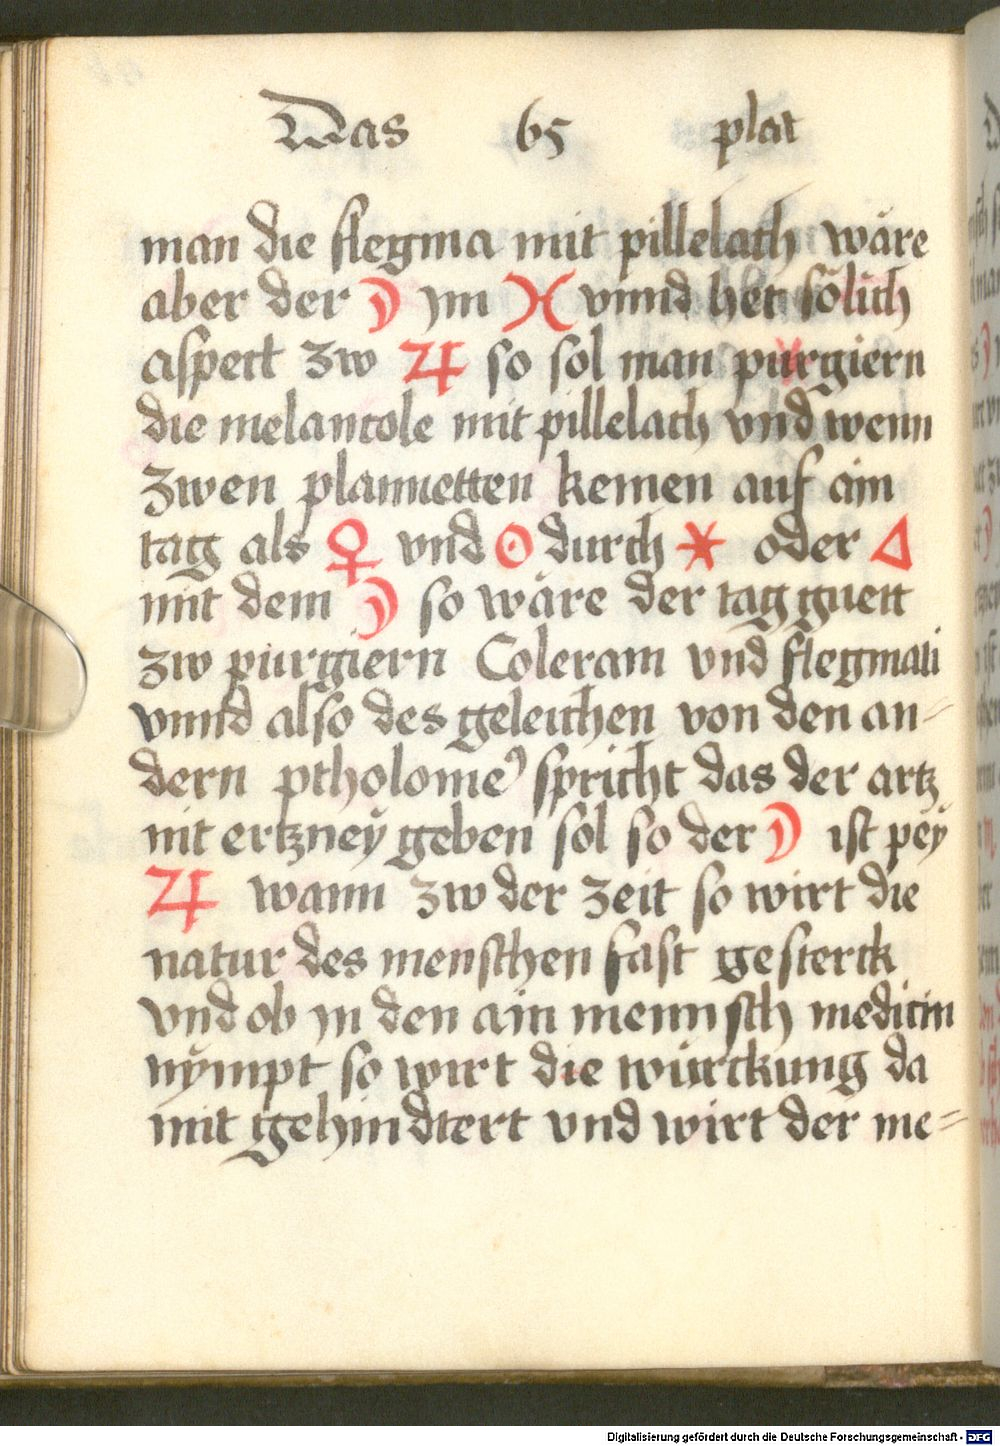 Das 65 plat
man die flegma mit pillelach wäre
aber der ☽ jm ♓ vnnd het sölich
aspect zw ♃ so sol man purgiern
die melancole mit pillelach vnd wenn
zwen plannetten kemen auf ain
tag als ♀ vnd ☉ durch ⚹ oder △
mit dem ☽ so wäre der tag guett
zw purgiern Coleram vnd flegmati
vnnd also des geleichen von den an-
dern ptholomeꝰ spricht das der artz
nit ertzney geben sol so der ☽ ist pey
♃ wann zw der zeit so wirt die
natur des menschen fast gesterck
vnd ob jn den ain mennsch medicin
nympt so wirt die würckung da
mit gehindtert vnd wirt der me=
Digitalisierung gefördert durch die Deutsche Forschungsgemeinschaft - DFG